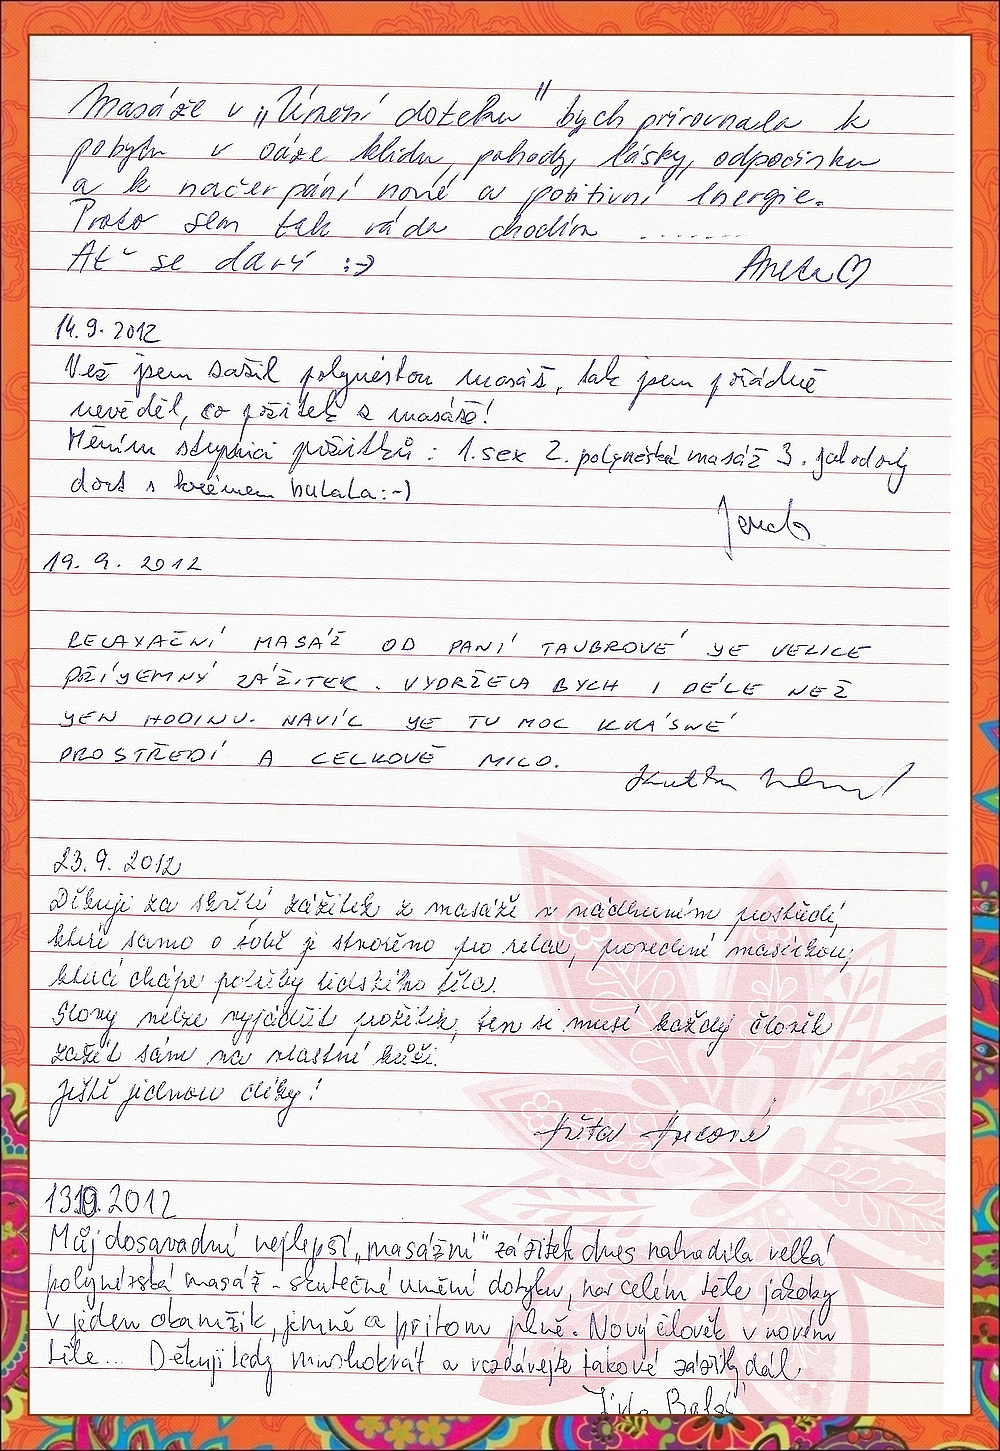 Masáže v „Umění doteku" bych přirovnala k
pobytu v oáze klidu, pohody, lásky, odpočinku
a k načerpání nové a pozitivní energie.
Proto sem tak ráda chodím ........
Ať se daří :-)
Aneta
14.9.2012
Než jsem zažil polynéskou masáž, tak jsem pořádně
nevěděl, co požitek z masáže!
Měním stupnici požitků: 1. sex 2. polynéská masáž 3. jahodový
dort s krémem :-)
19. 9. 2012
RELAXAČNÍ MASÁŽ OD PANÍ TAUBROVÉ JE VELICE
PŘÍJEMNÝ ZÁŽITEK. VYDRŽELA BYCH I DÉLE NEŽ
JEN HODINU. NAVÍC JE TU MOC KRÁSNÉ
PROSTŘEDÍ A CELKOVĚ MILO.
23.9.2012
Děkuji za skvělý zážitek z masáže v nádherném prostředí,
které samo o sobě je stvořeno pro relax, provedené masérkou,
která chápe potřeby lidského těla.
Slovy nelze vyjádřit prožitek, ten si musí každý člověk
zažít sám na vlastní kůži.
Ještě jednou díky!
13.10.2012
Můj dosavadní nejlepší „masážní" zážitek dnes nahradila velká
polynézská masáž - skutečné umění dotyku, na celém těle jakoby
v jeden okamžik, jemně a přitom plně. Nový člověk v novém
těle... Děkuji tedy mnohokrát a rozdávejte takové zážitky dál